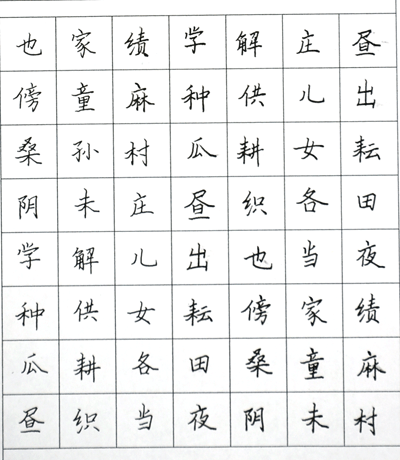 也家绩学解庄昼
傍童麻种供儿出
桑孙村瓜耕女耘
阴未庄昼织各田
学解儿出也当夜
种供女耘傍家绩
瓜耕各田桑童麻
昼织当夜阴未村